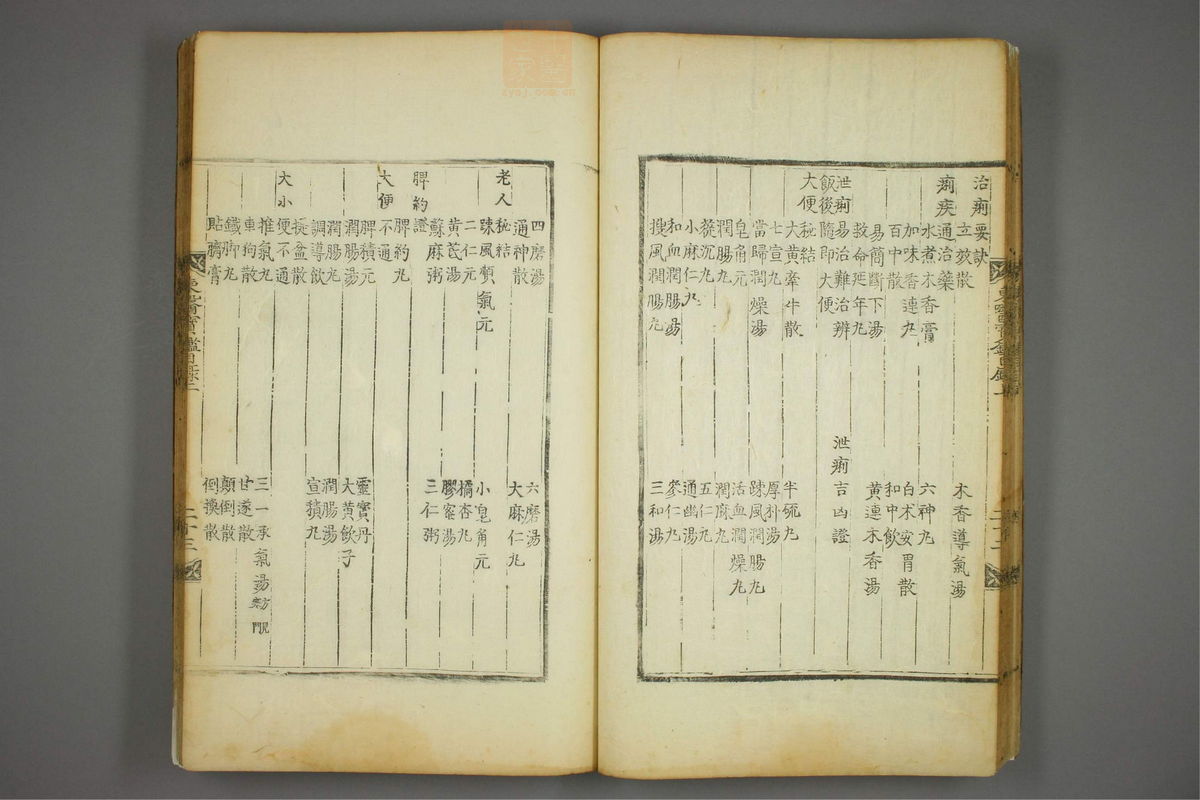 治痢要訣
立效散 木香導氣湯
痢疾通治藥
水煮木香膏 六神丸
加味香連丸 白朮安胃散
百中散 和中飮
易簡斷下湯 黃連木香湯
救命延年丸
泄痢易治難治辨 泄痢吉凶證
飯後隨即大便
大便秘結
大黃牽牛散 半硫丸
七宣丸 厚朴湯
當歸潤燥湯 疎風潤腸丸
皂角元 活血潤燥丸
潤腸丸 潤麻丸
蓯沉丸 五仁丸
小麻仁丸 通幽湯
和血潤腸湯 參仁丸
搜風潤腸丸 三和湯
四磨湯 六磨湯
通神散 大麻仁丸
老人秘結
疎風順氣元 小皂角元
二仁元 橘杏丸
黃芪湯 膠蜜湯
蘇麻粥 三仁粥
脾約證
脾約丸
大便不通
脾積元 靈寶丹
潤腸湯 大黃飮子
潤腸丸 潤腸湯
調導飮 宣積丸
提盆散
大小便不通
推氣丸 三一承氣湯
車狗散 甘遂散
鐵脚丸 顚倒散
貼臍膏 倒換散
東醫寶鑑目錄 二十三